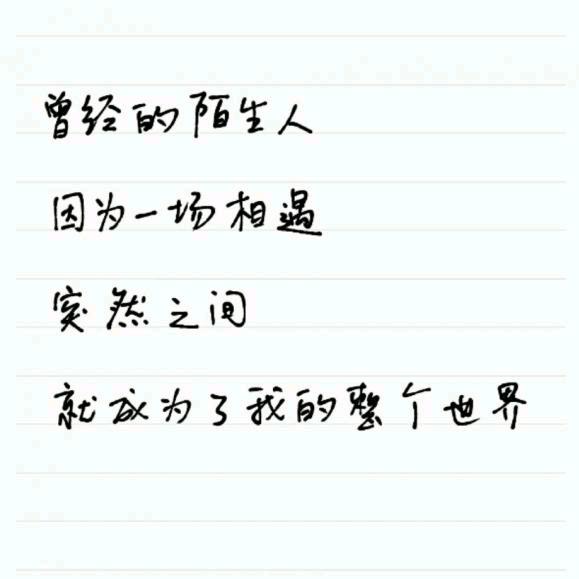 曾经的陌生人
因为一场相遇
突然之间
就成为了我的整个世界